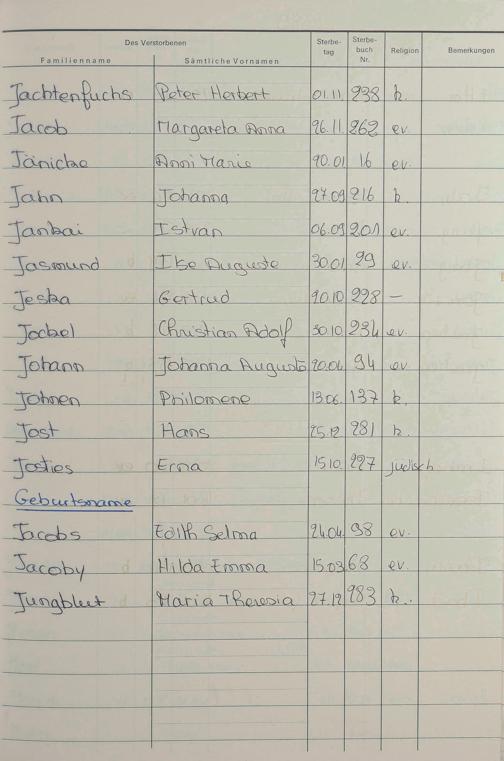 Des Verstorbenen Sterbe- Sterbe- Religion Bemerkungen
Familienname Sämtliche Vornamen tag buch
Nr.
Jachtenfuchs Peter Herbert 01.11 238 k.
Jacob Margareta Anna 26.11 262 ev.
Jänicke Anni Marie 20.01 16 ev.
Jahn Johanna 27.09 216 k.
Jankai Istvan 06.09 201 ev.
Jasmund Ilse Auguste 30.01 29 ev.
Jeska Gertrud 20.10 228 –
Jockel Christian Adolf 30.10 234 ev.
Johann Johanna Auguste 20.04 94 ev
Johnen Philomene 13.06. 137 k.
Jost Hans 25.12 281 k.
Josties Erna 15.10. 227 jüdisch
Geburtsname
Jacobs Edith Selma 24.04. 98 ev.
Jacoby Hilda Emma 15.03 68 ev.
Jungblut Maria Theresia 27.12 283 k.